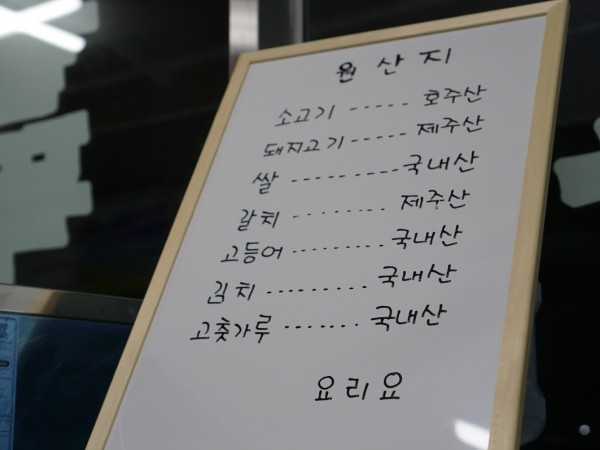 원산지
소고기 ----- 호주산
돼지고기 ------ 제주산
쌀 --------- 국내산
갈치 -------- 제주산
고등어 --------- 국내산
김치 --------- 국내산
고춧가루 ------- 국내산
요리요